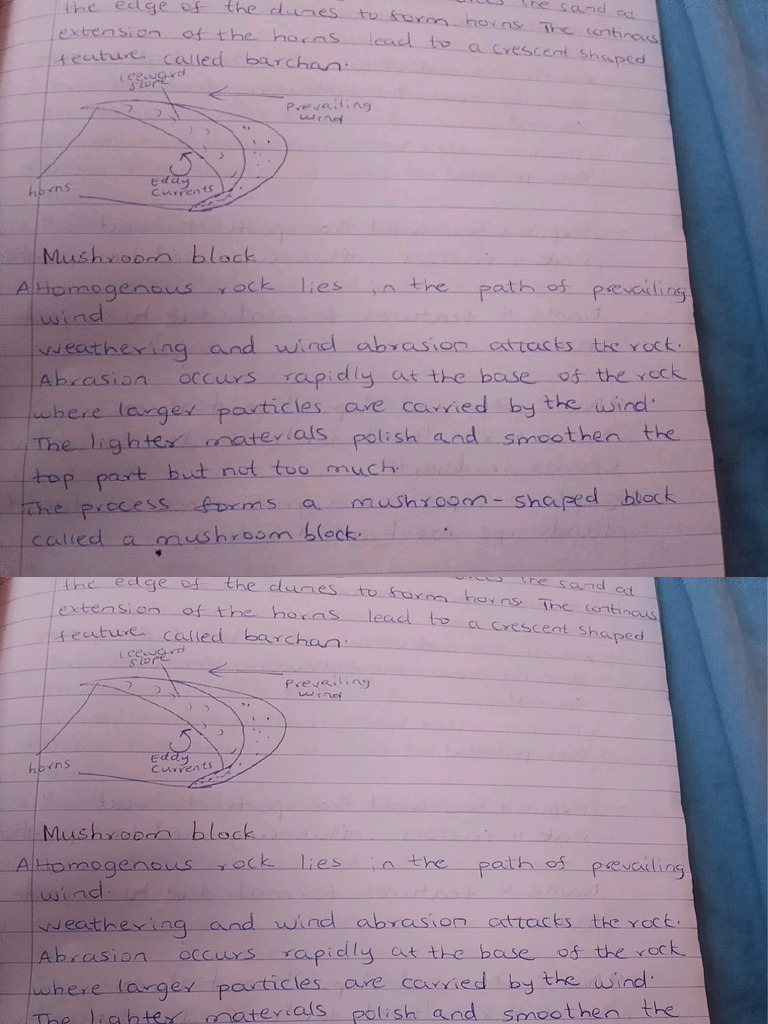 the edge of the dunes to form horns. The continous
extension of the horns lead to a crescent shaped
feature called barchan.
Leeward
slope
Prevailing
wind
horns
Eddy
Currents
Mushroom block
A Homogenous rock lies in the path of prevailing
wind
weathering and wind abrasion attacks the rock.
Abrasion occurs rapidly at the base of the rock
where larger particles are carried by the wind.
The lighter materials polish and smoothen the
top part but not too much.
The process forms a mushroom-shaped block
called a mushroom block.
the edge of the dunes to form horns. The continous
extension of the horns lead to a crescent shaped
feature called barchan.
Leeward
slope
Prevailing
wind
horns
Eddy
Currents
Mushroom block
A Homogenous rock lies in the path of prevailing
wind.
weathering and wind abrasion attacks the rock.
Abrasion occurs rapidly at the base of the rock
where larger particles are carried by the wind.
The lighter materials polish and smoothen the